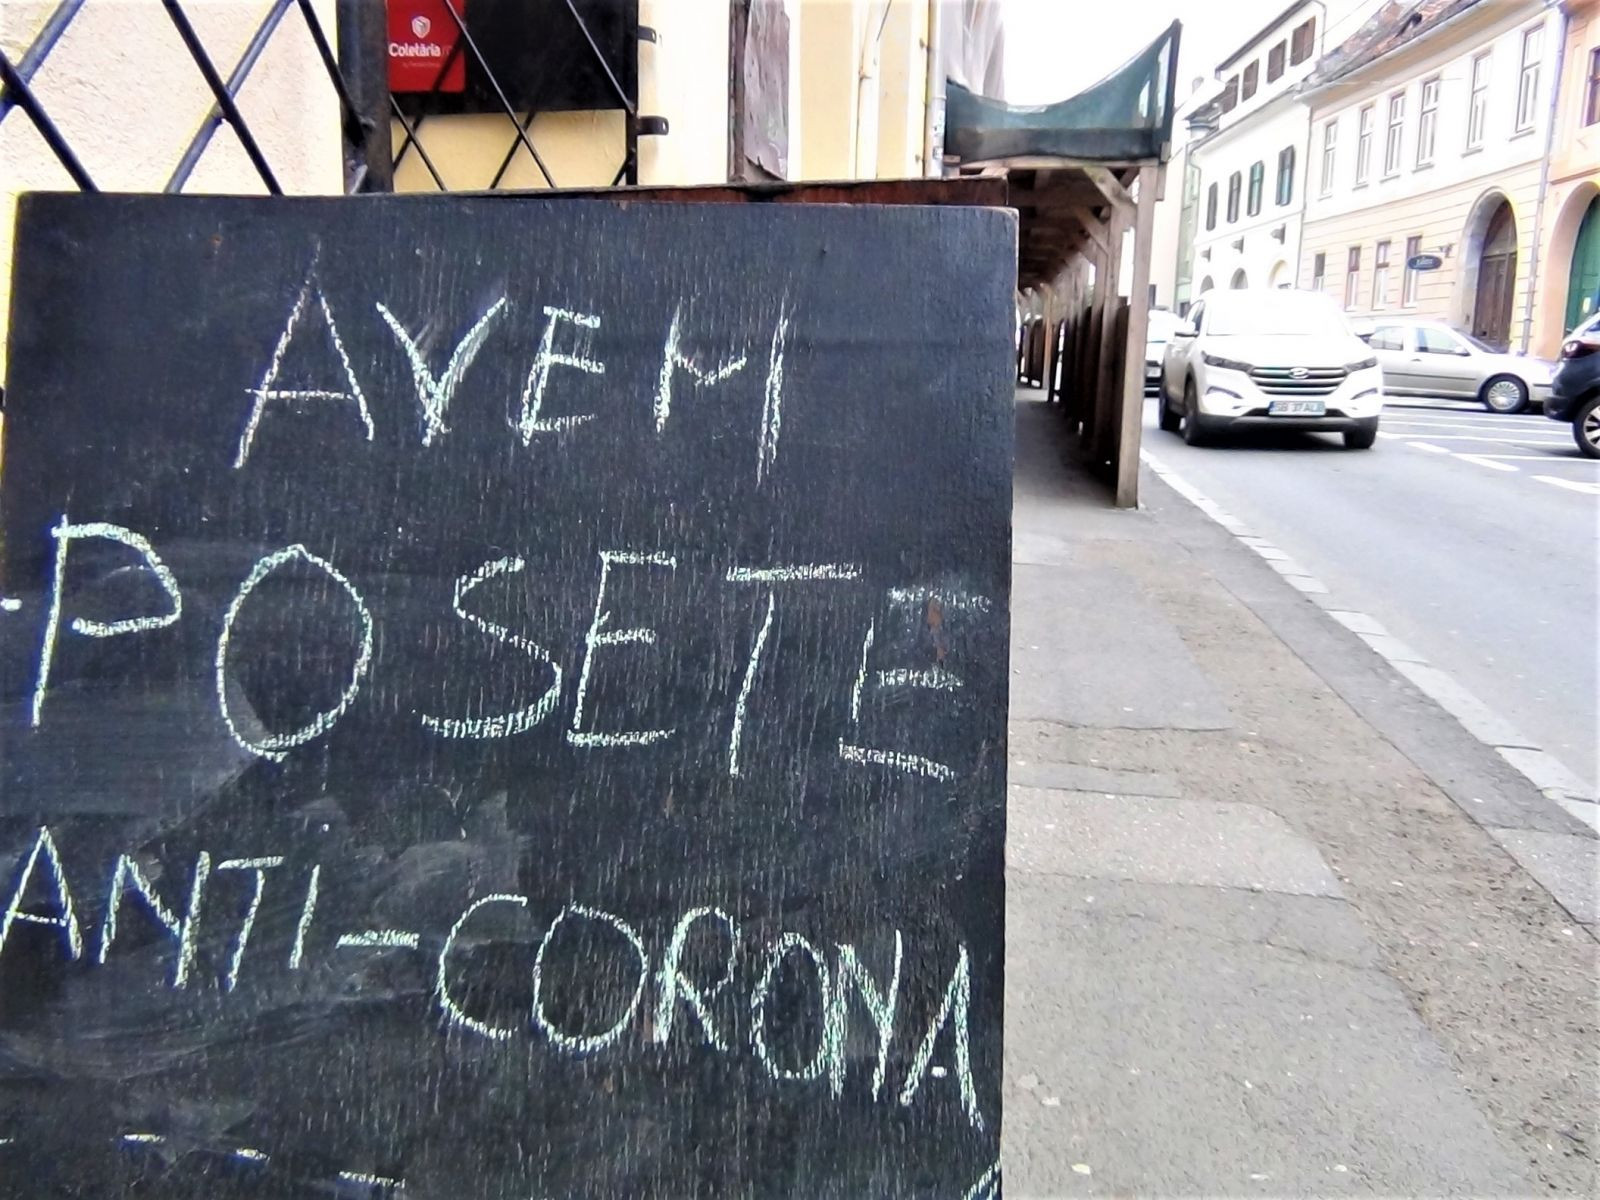 Coletăria
AVEM
POSETE
ANTI-CORONA
SB 37 ALB